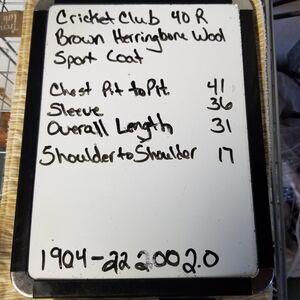 Cricket Club 40 R
Brown Herringbone Wool
Sport Coat
Chest Pit to Pit 41
Sleeve 36
Overall Length 31
Shoulder to Shoulder 17
1904-22 2002.0